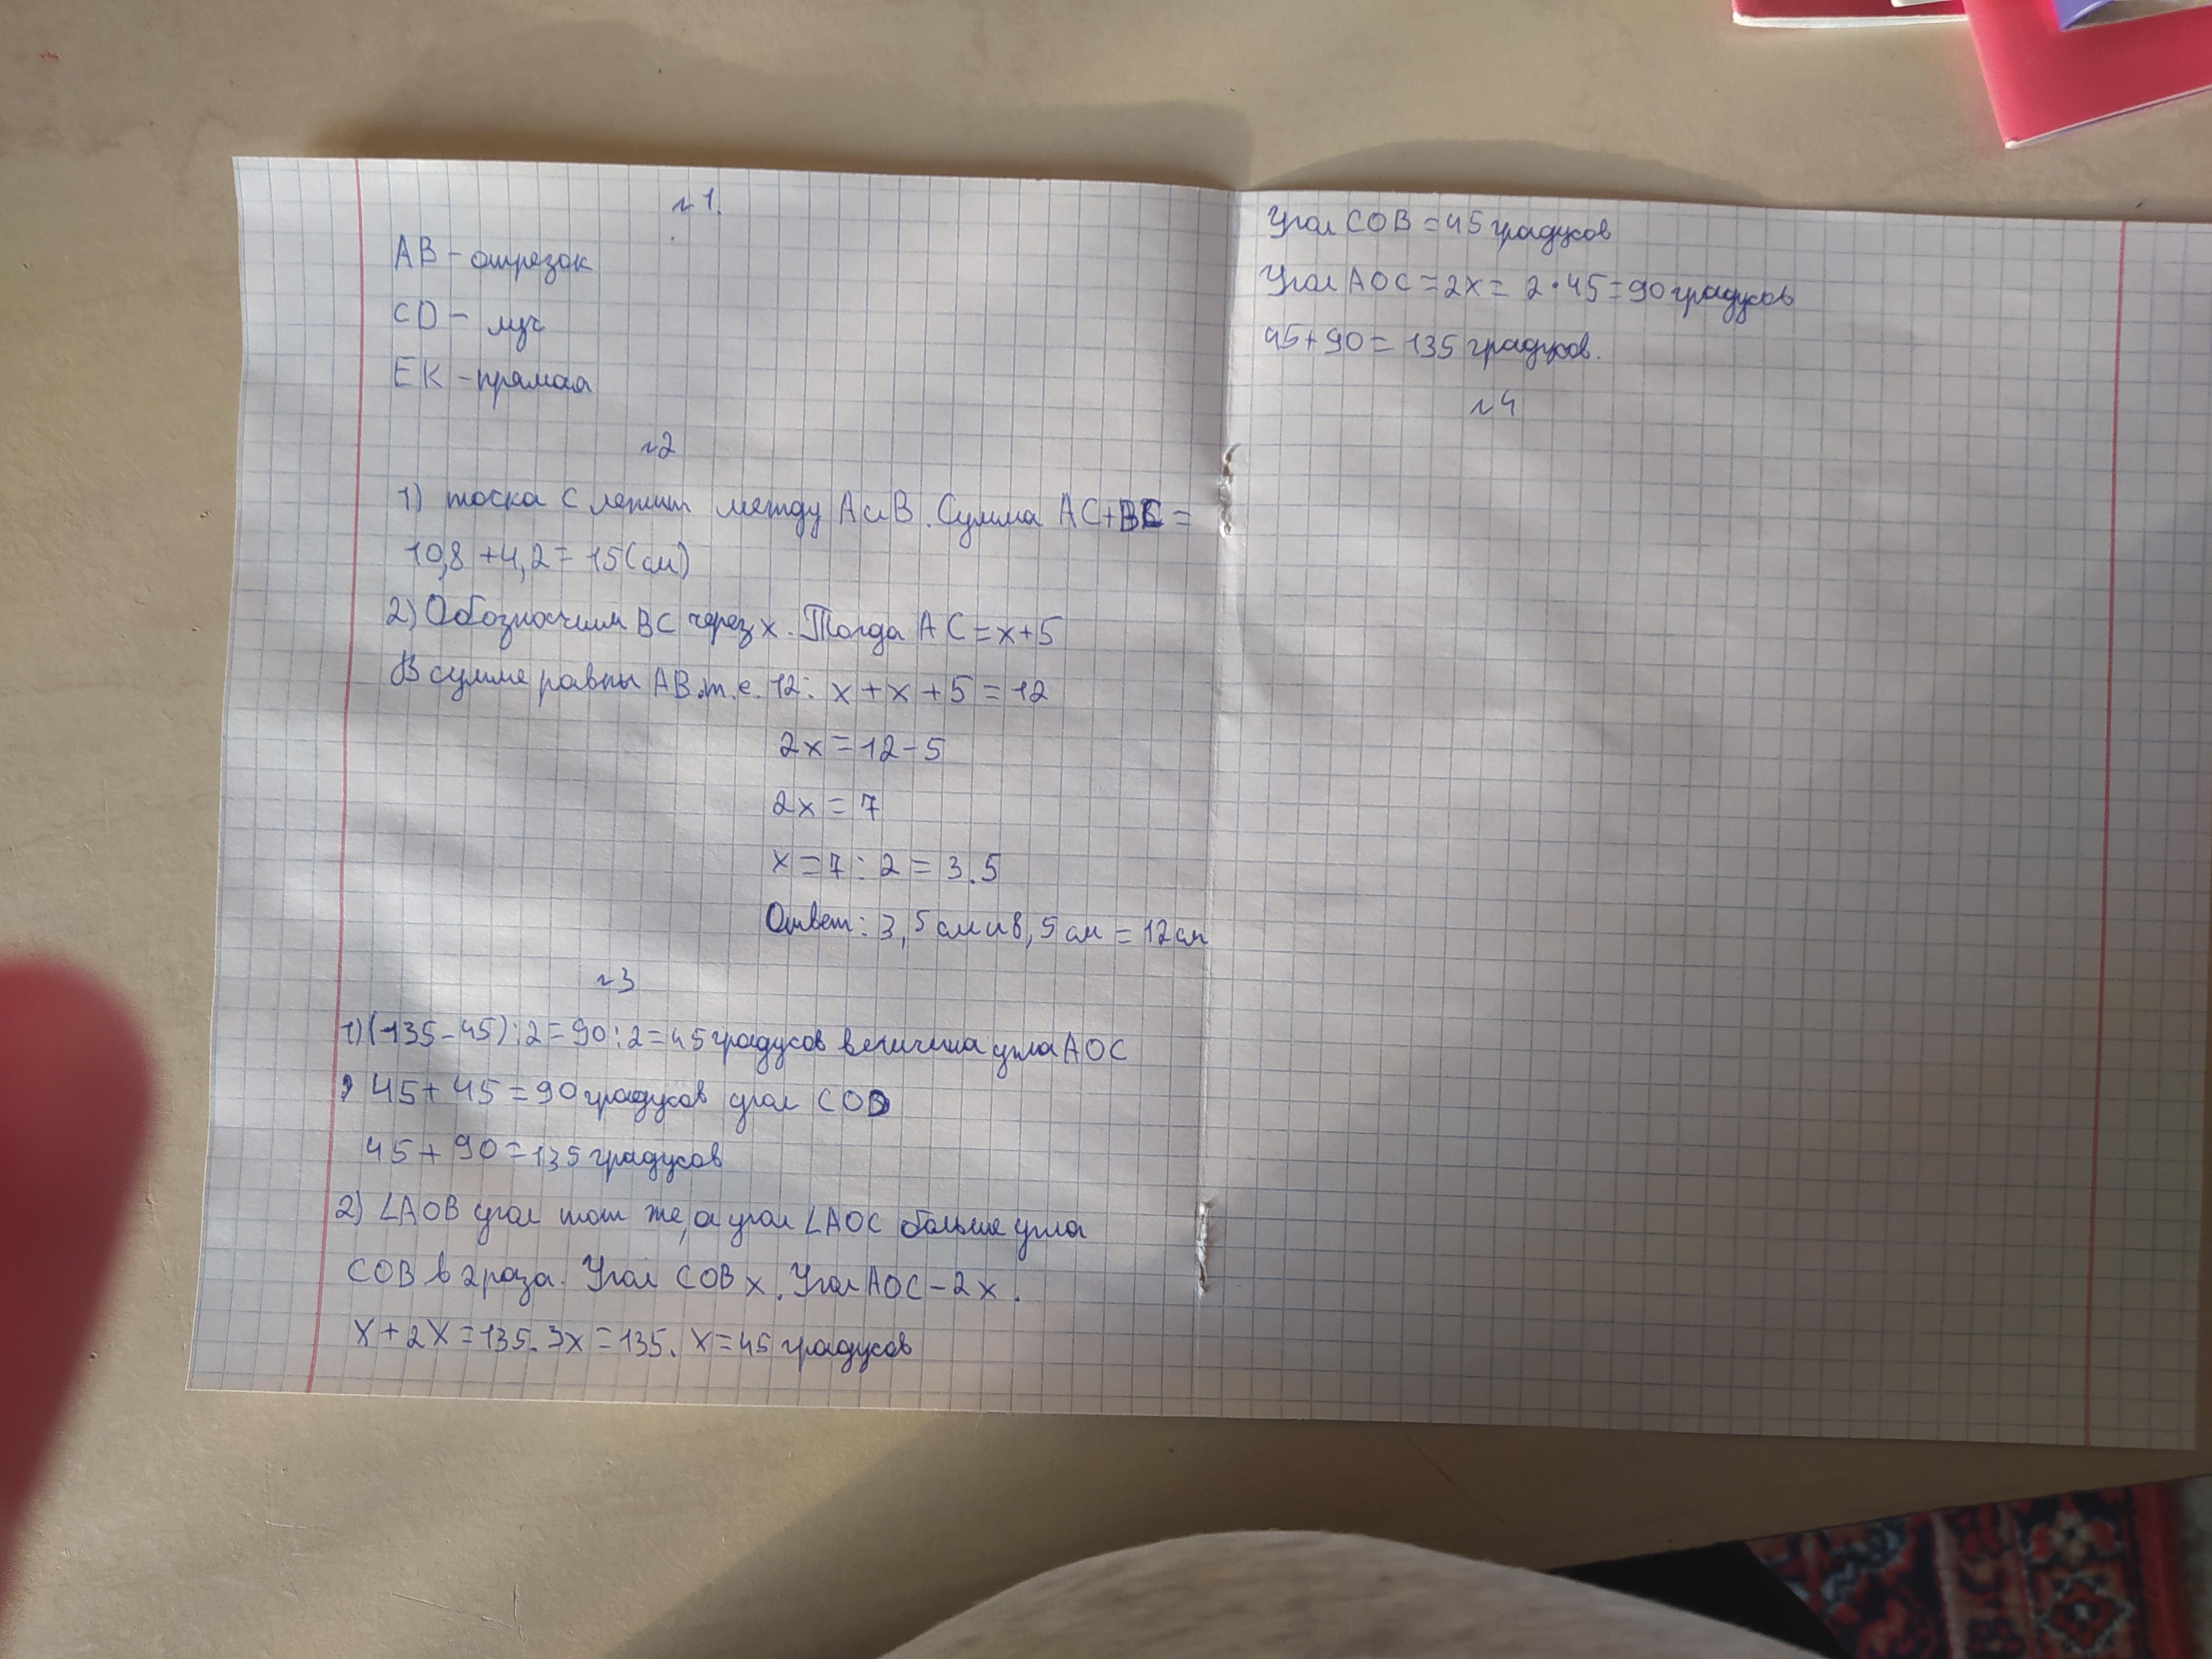 №1.
AB - отрезок
CD - луч
EK - прямая
№2
1) точка C лежит между A и B. Сумма AC+BC =
10,8 + 4,2 = 15(см)
2) Обозначим BC через x. Тогда AC = x+5
В сумме равны AB.т.е. 12: x + x + 5 = 12
2x = 12 - 5
2x = 7
x = 7 : 2 = 3.5
Ответ: 3,5 см и 8,5 см = 12 см
№3
1) (135 - 45) : 2 = 90 : 2 = 45 градусов величина угла AOC
45 + 45 = 90 градусов угол COD
45 + 90 = 135 градусов
2) ∠AOB угол тот же, а угол ∠AOC больше угла
COB в 2 раза. Угол COB x. Угол AOC - 2x.
x + 2x = 135. 3x = 135. x = 45 градусов
Угол COB = 45 градусов
Угол AOC = 2x = 2 · 45 = 90 градусов
45 + 90 = 135 градусов.
№4